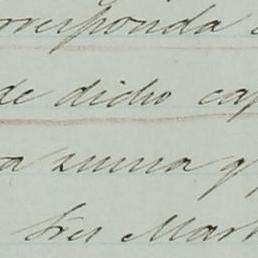 corresponda
de dicho cap
a suma q
tres Mart